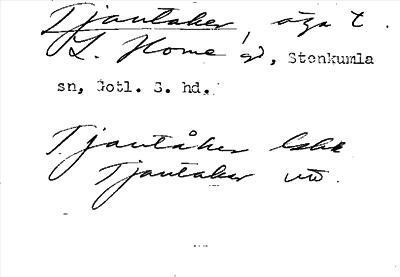 Tjautaker, äga t.
L. Home gd, Stenkumla
sn, Gotl. S. hd.
Tjautåker
Tjautaker utt.